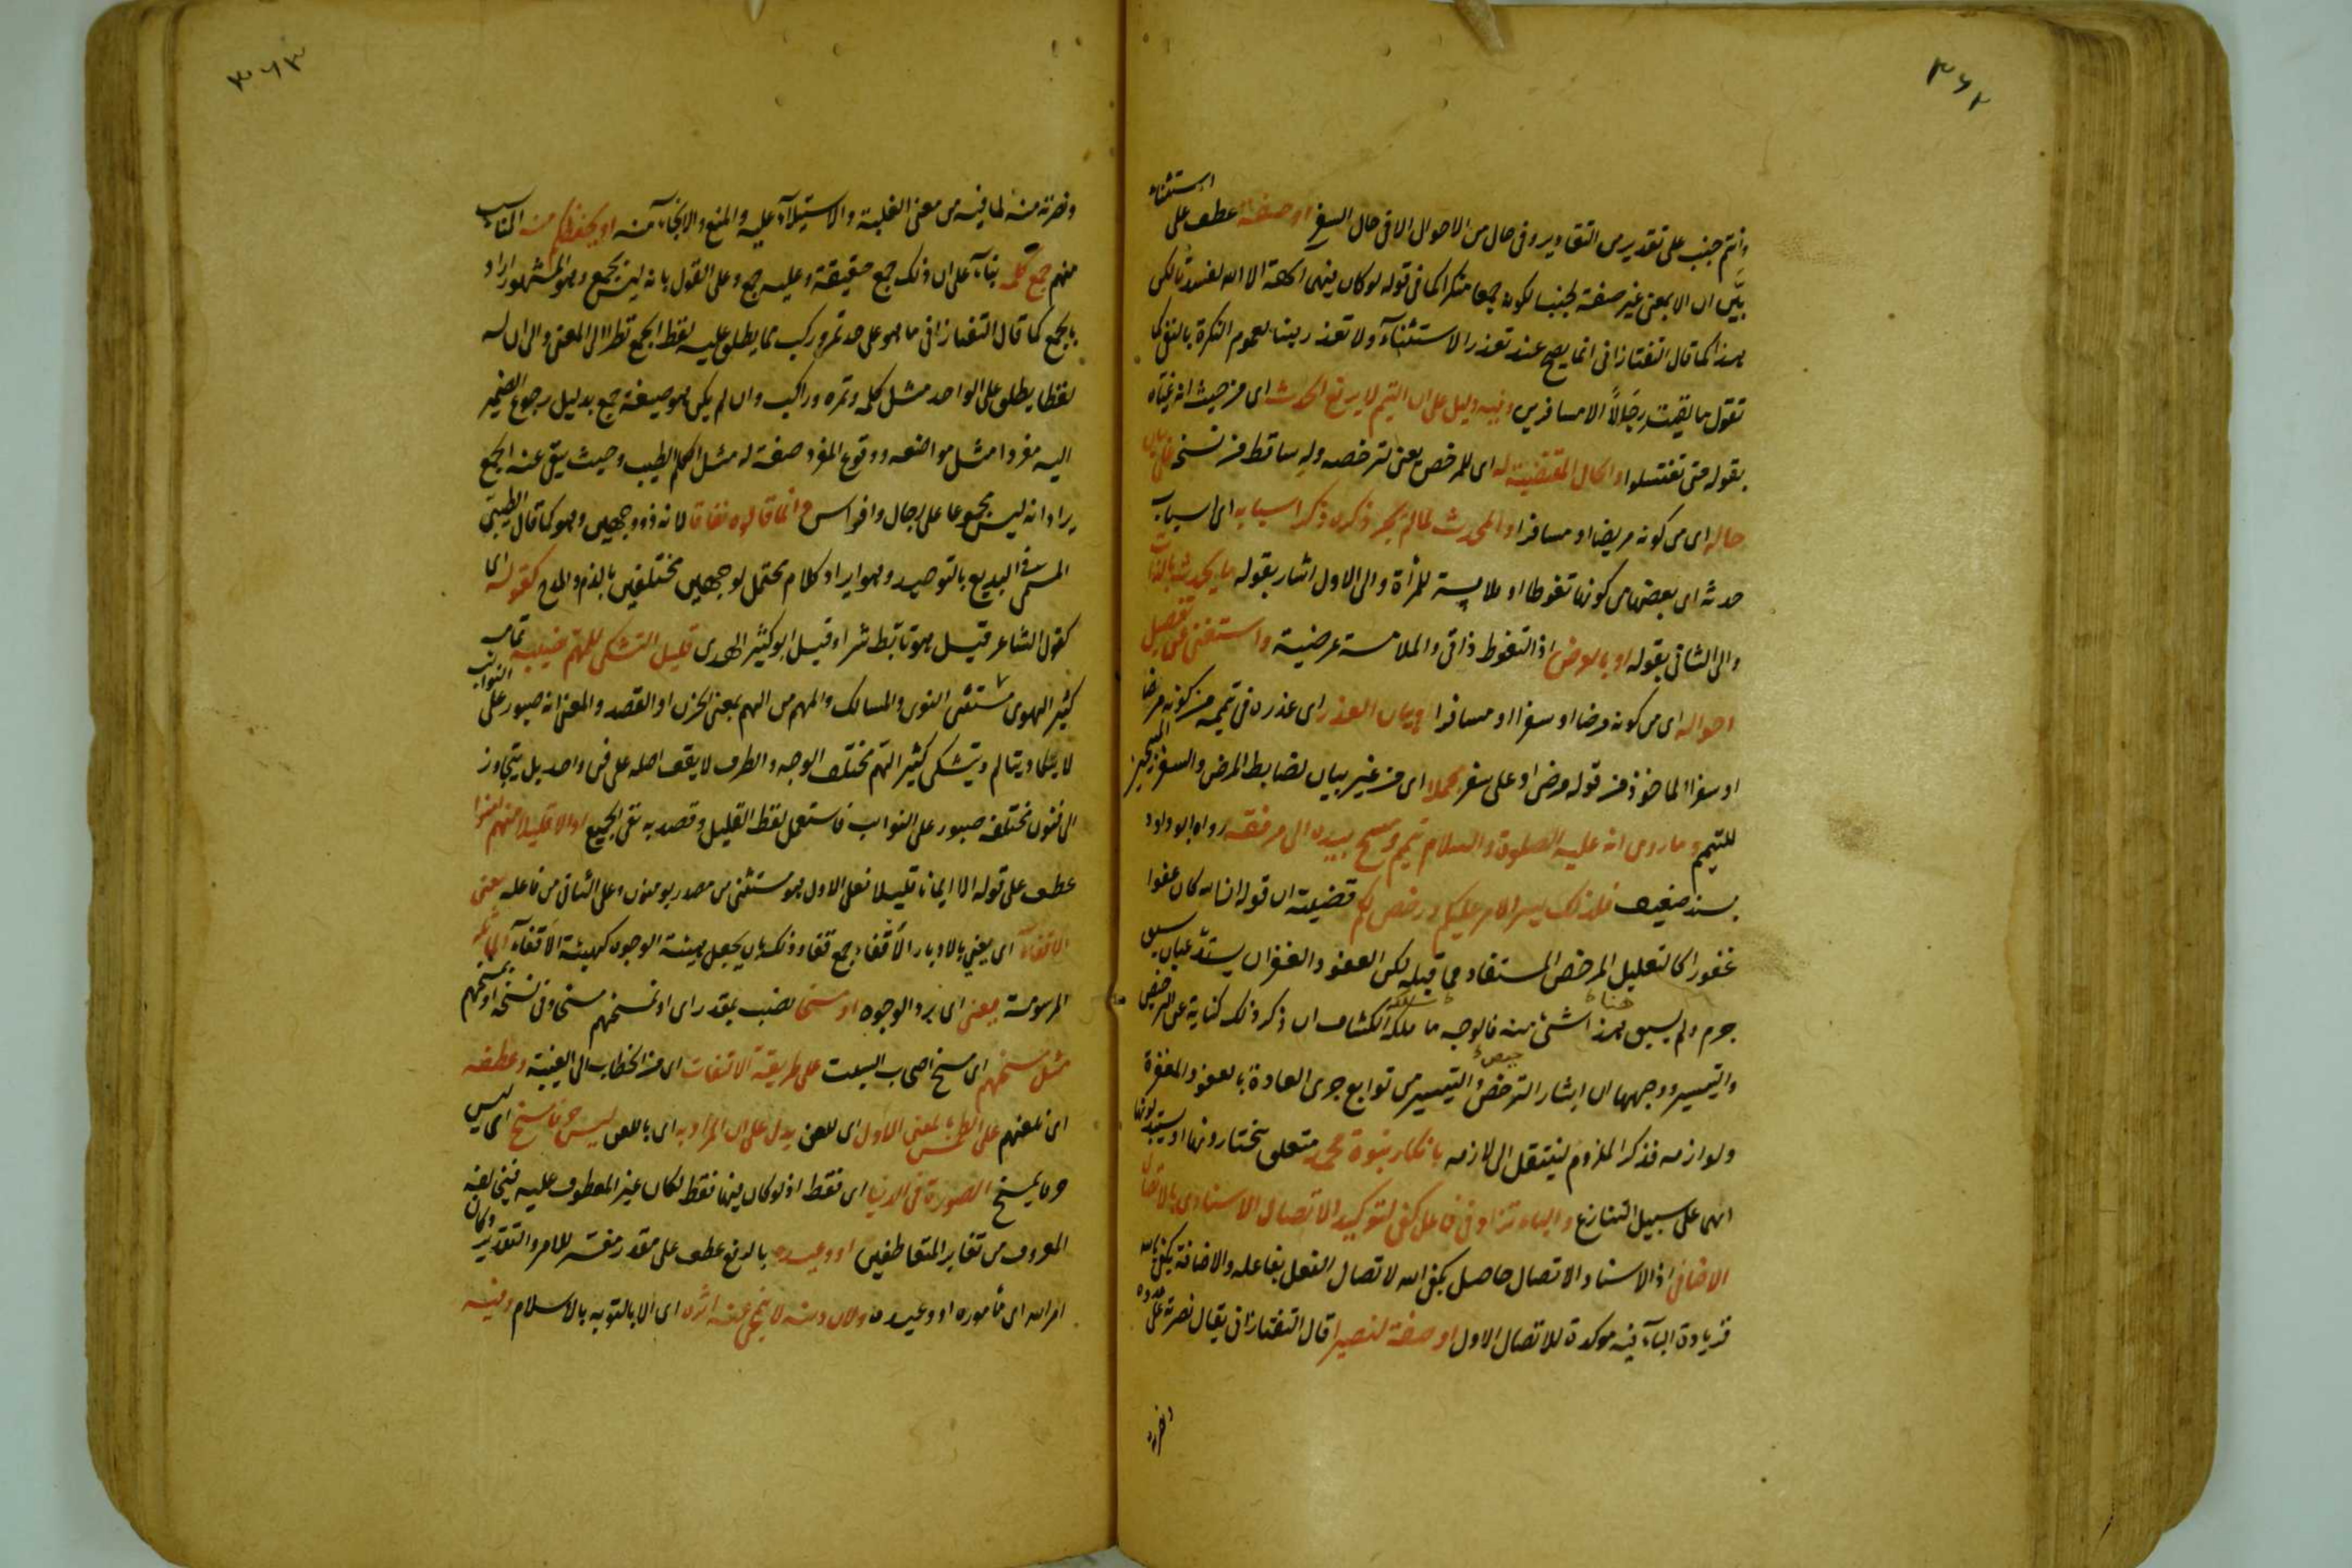 ٣٦٢
استثناء
وانتم جنب على تقدير من التقادير وفى حال من الاحوال الا فى حال السفر او صفة عطف على
بيّن ان الا بمعنى غير صفة لجنبا لكونه جمعا منكرا كما فى قوله لو كان فيهما آلهة الا الله لفسدتا لكن
هذا كما قال التفتازانى انما يصح عند تعذر الاستثناء ولا تعذر هنا لعموم النكرة بالنفى كما
تقول ما لقيت رجالاً الا مسافرين وفيه دليل على ان التيمم لا يرفع الحدث اى من حيث انه غيّاه
بقوله حتى تغتسلوا والحال المقتضية له اى للمرخص يعنى لترخصه وله ساقط من نسخ
حاله اى من كونه مريضا او مسافرا والمحدث لما لم يجر ذكره ذكر اسبابه اى اسباب
حدثه اى بعضها من كونها تغوطا او ملامسة للمرأة والى الاول اشار بقوله ما يحدث بالذات
والى الثانى بقوله او بالعرض اذ التغوط ذاتى والملامسة عرضية واستغنى عن تفصيل
احواله اى من كونه مرضا او سفرا او مسافرا وبيان العذر اى عذره فى تيممه من كونه مرضا
او سفرا الماخوذ من قوله مرضى او على سفر مجملا اى من غير بيان لضابط المرض والسفر المبيحين
للتيمم وما روى انه عليه الصلوة والسلام تيمم ومسح بيديه الى مرفقيه رواه ابو داود
بسند ضعيف فلذلك يسر الامر عليكم ورخص لكم قضيته ان قوله ان الله كان عفوا
غفورا كالتعليل للمرخص المستفاد مما قبله لكن العفو والغفران يستدعيان سبق
جرم ولم يسبق هنا شئ منه فالوجه ما سلكه الكشاف ان ذكر ذلك كناية عن الترخيص
والتيسير ووجهها ان ايثار الترخيص والتيسير من توابع جرى العادة بالعفو والمغفرة
ولوازمه فذكر الملزوم لينتقل الى لازمه بانكار نبوة محمد متعلق بيختارونها او يستبدلونها
اى على سبيل التنازع والباء تزاد فى فاعل كفى لتوكيد الاتصال الاسنادى بالاتصال
الاضافى اذ الاسناد والاتصال حاصل بكفى الله لاتصال الفعل بفاعله والاضافة بكفى بالله
فزيادة الباء فيه موكدة للاتصال الاول او صفة لنصيرا قال التفتازانى يقال نصرته على عدوه
ونصرته
٣٦٣
ونصرته منه لما فيه من معنى الغلبة والاستيلاء عليه والمنع والانجاء منه او يحفظكم منه المناسب
منهم جمع كلمة بناء على ان ذلك جمع حقيقة وعليه جمع وعلى القول بانه ليس بجمع وهو المشهور اراد
بالجمع كما قال التفتازانى ما هو على حد تمر وركب مما يطلق عليه لفظ الجمع نظرا الى المعنى والى ان له
لفظا يطلق على الواحد مثل كلمة وتمرة وراكب وان لم يكن هو صيغة جمع بدليل رجوع الضمير
اليه مفردا مثل مواضعه ووقوع المفرد صفة له مثل الكلم الطيب وحيث ينفى عنه الجمع
يراد انه ليس مجموعا على رجال وافراس وانما قالوه نفاقا لانه ذو وجهين وهو كما قال الطيبى
المسمى فى البديع بالتوجيه وهو ايراد كلام يحتمل لوجهين مختلفين بالذم والمدح كقوله اى
كقول الشاعر قيل هو تابط شرا وقيل ابو كثير الهذلى قليل التشكى للمهم يصيبه تمامه
كثير الهوى شتى النوى والمسالك والمهم من الهم بمعنى الحزن او القصد والمعنى انه صبور على النوائب
لا يكاد يتالم ويتشكى كثير الهم مختلف الوجه والطرف لا يقف امله على فن واحد بل يتجاوز
الى فنون مختلفة صبور على النوائب فاستعمل لفظ القليل وقصد به نفى الجميع او الا قليلا منهم امنوا
عطف على قوله الا ايمانا قليلا فعلى الاول هو مستثنى من مصدر يومنون وعلى الثانى من فاعله يعنى
الاقفاء اى يعنى بالادبار الاقفاء جمع قفا وذلك بان يجعل هيئة الوجوه كهيئة الاقفاء
المرسومة يعنى اى برد الوجوه او مسخا نصب بمقدر اى او نمسخهم مسخا وفى نسخة او نمسخهم
مثل مسخهم اى مسخ اصحاب السبت على طريقة الالتفات اى من الخطاب الى الغيبة وعطفه
اى نلعنهم على الطمس بالمعنى الاول اى للعن يدل على ان المراد به اى باللعن ليس هو ما مسخ اى ليس
هو ما يمسخ الصورة فى الدنيا اى فقط اذ لو كان فيها فقط لكان عين المعطوف عليه فيخالف
المعروف من تغاير المتعاطفين او وعيده بالرفع عطف على مقدر مفسر للامر والتقدير وكان
امر الله اى مأموره او وعيده ولان ذنبه لا ينمحى عنه اثره اى الا بالتوبة بالاسلام وفيه